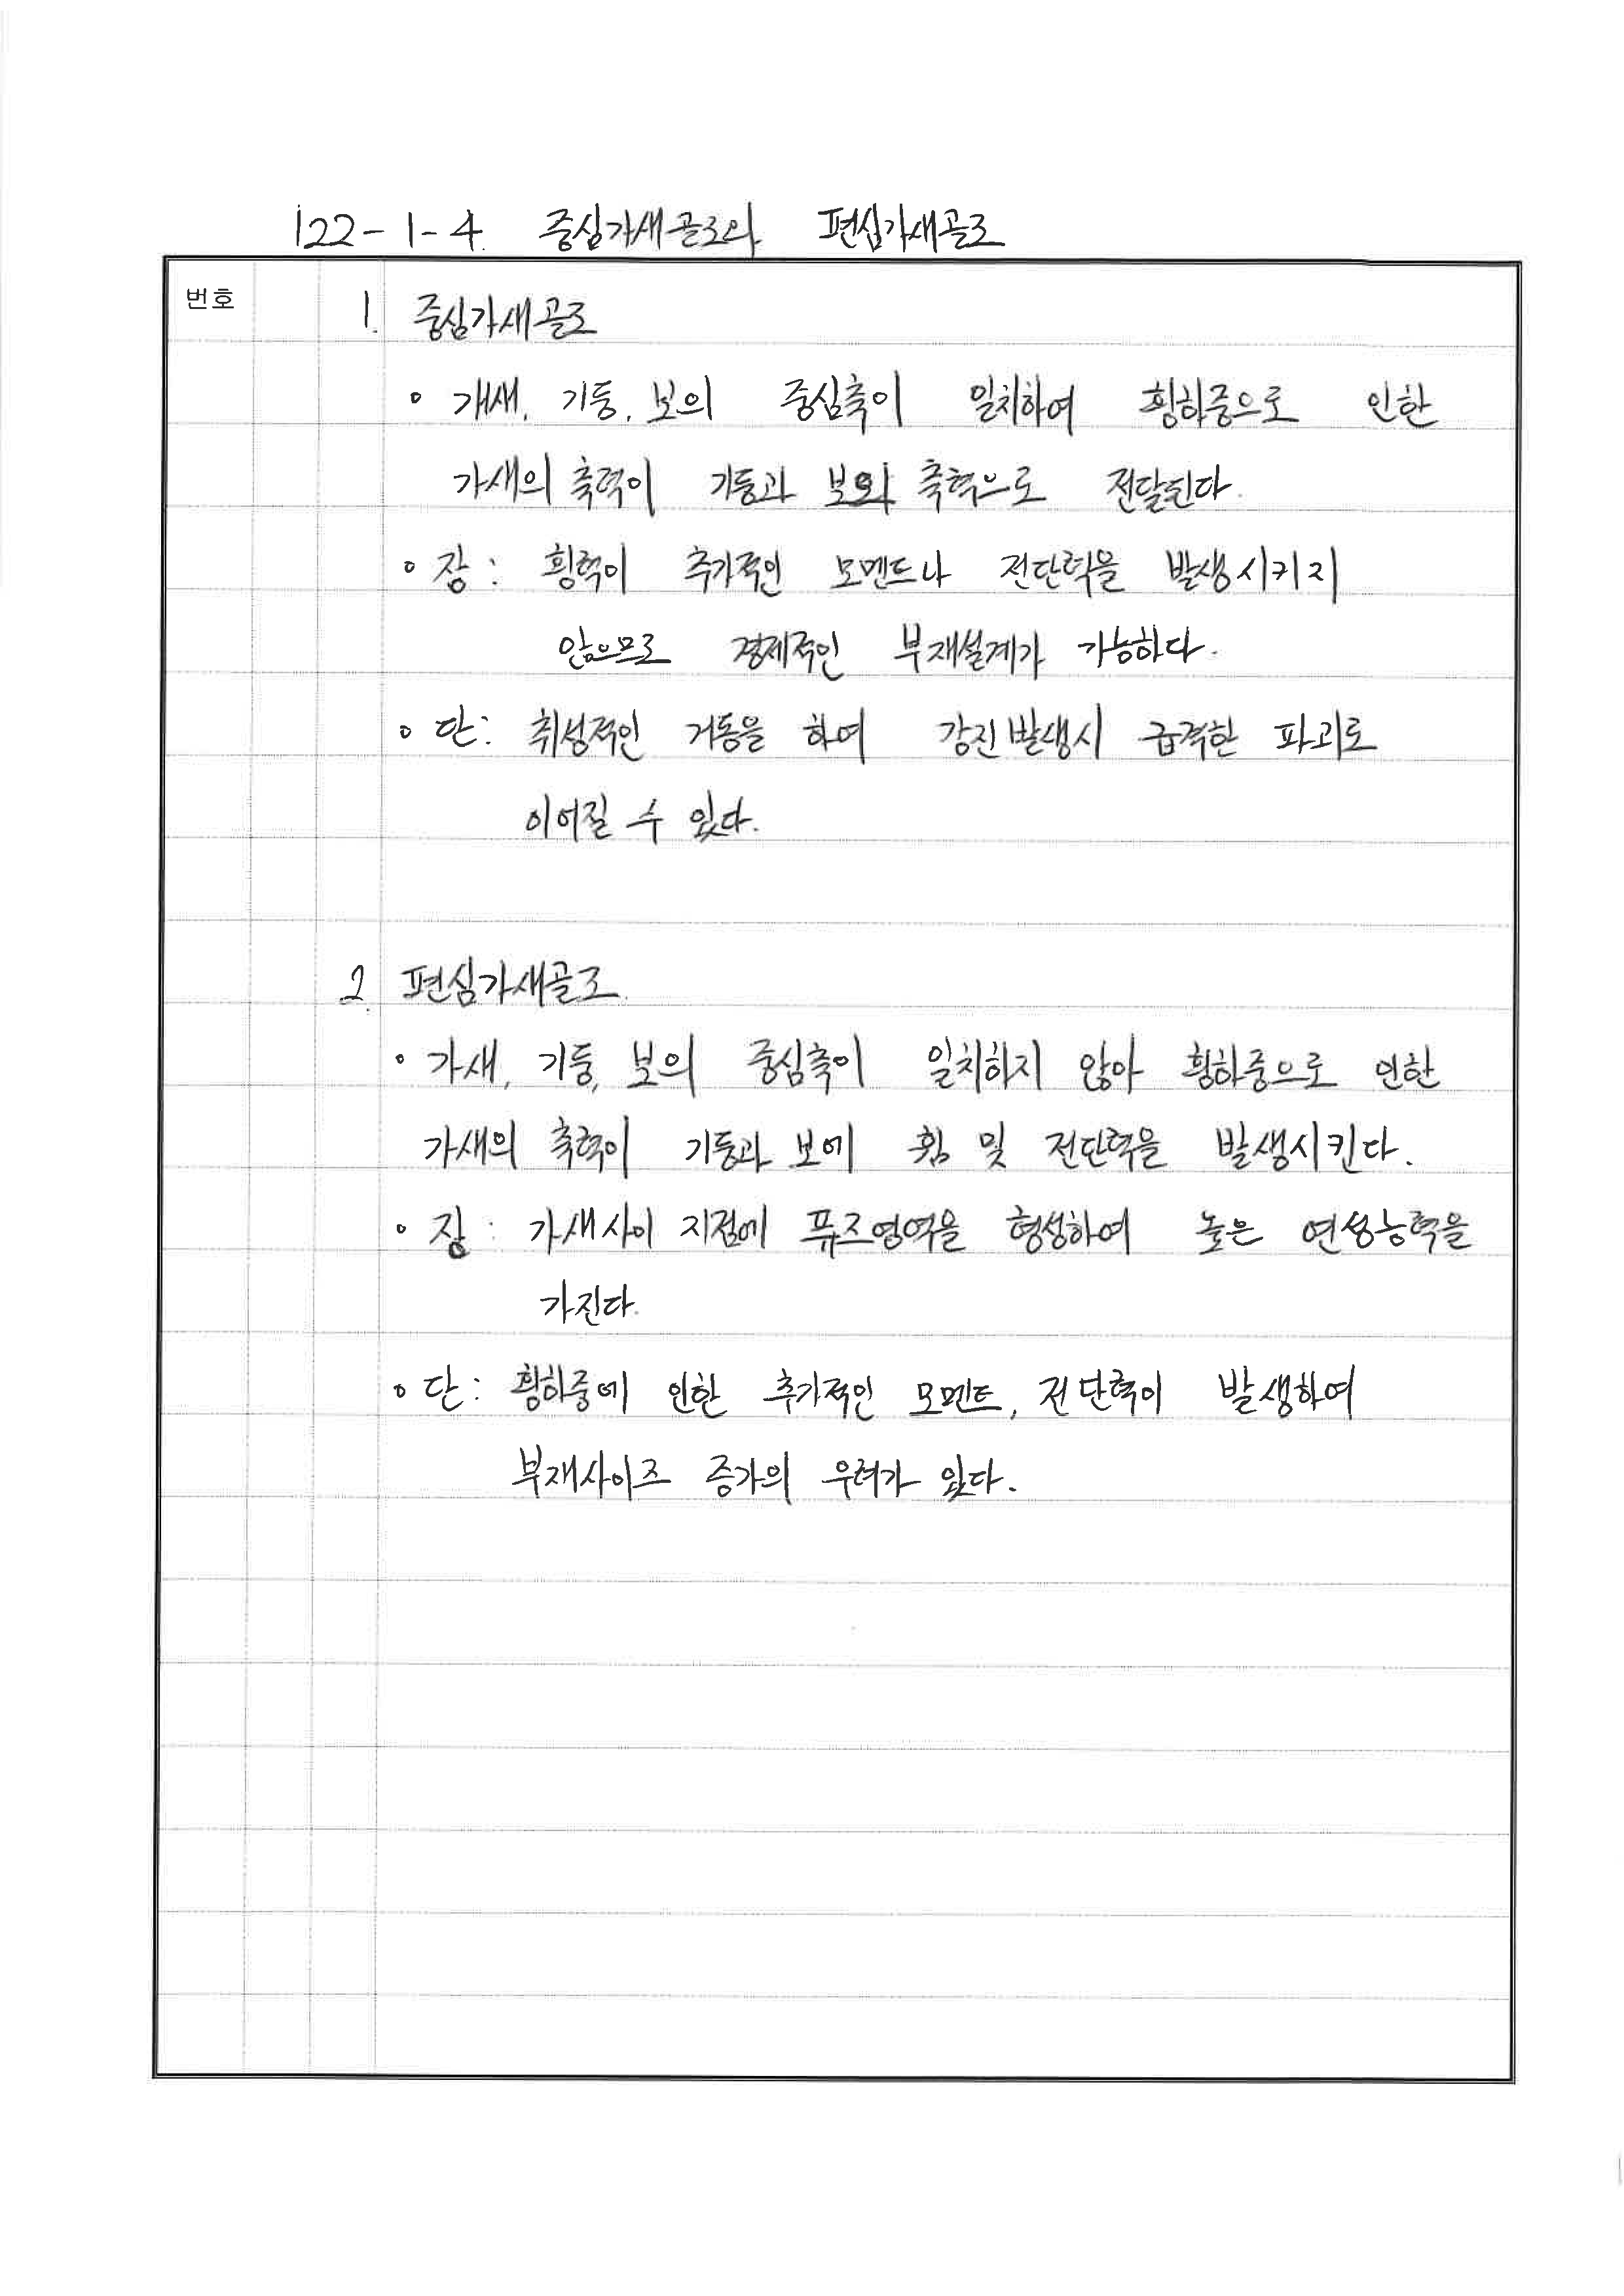 122-1-4. 중심가새골조와 편심가새골조
번호
1. 중심가새골조
∘ 개새, 기둥, 보의 중심축이 일치하여 횡하중으로 인한
가새의 축력이 기둥과 보의 축력으로 전달된다.
∘ 장 : 횡력이 추가적인 모멘트나 전단력을 발생시키지
않으므로 경제적인 부재설계가 가능하다.
∘ 단 : 취성적인 거동을 하여 강진발생시 급격한 파괴로
이어질 수 있다.
2. 편심가새골조.
∘ 가새, 기둥, 보의 중심축이 일치하지 않아 횡하중으로 인한
가새의 축력이 기둥과 보에 휨 및 전단력을 발생시킨다.
∘ 장 : 가새사이 지점에 퓨즈영역을 형성하여 높은 연성능력을
가진다.
∘ 단 : 횡하중에 인한 추가적인 모멘트, 전단력이 발생하여
부재사이즈 증가의 우려가 있다.